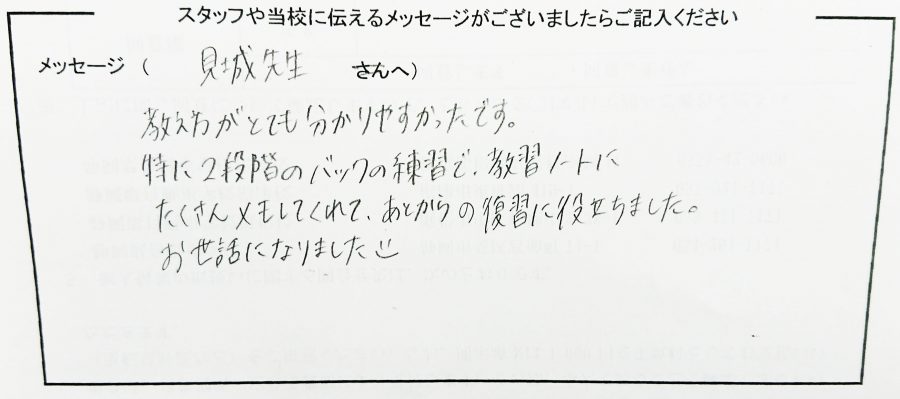 スタッフや当校に伝えるメッセージがございましたらご記入ください
メッセージ ( 見城先生 さんへ)
教え方がとても分かりやすかったです。
特に2段階のバックの練習で、教習ノートに
たくさんメモしてくれて、あとからの復習に役せちました。
お世話になりました